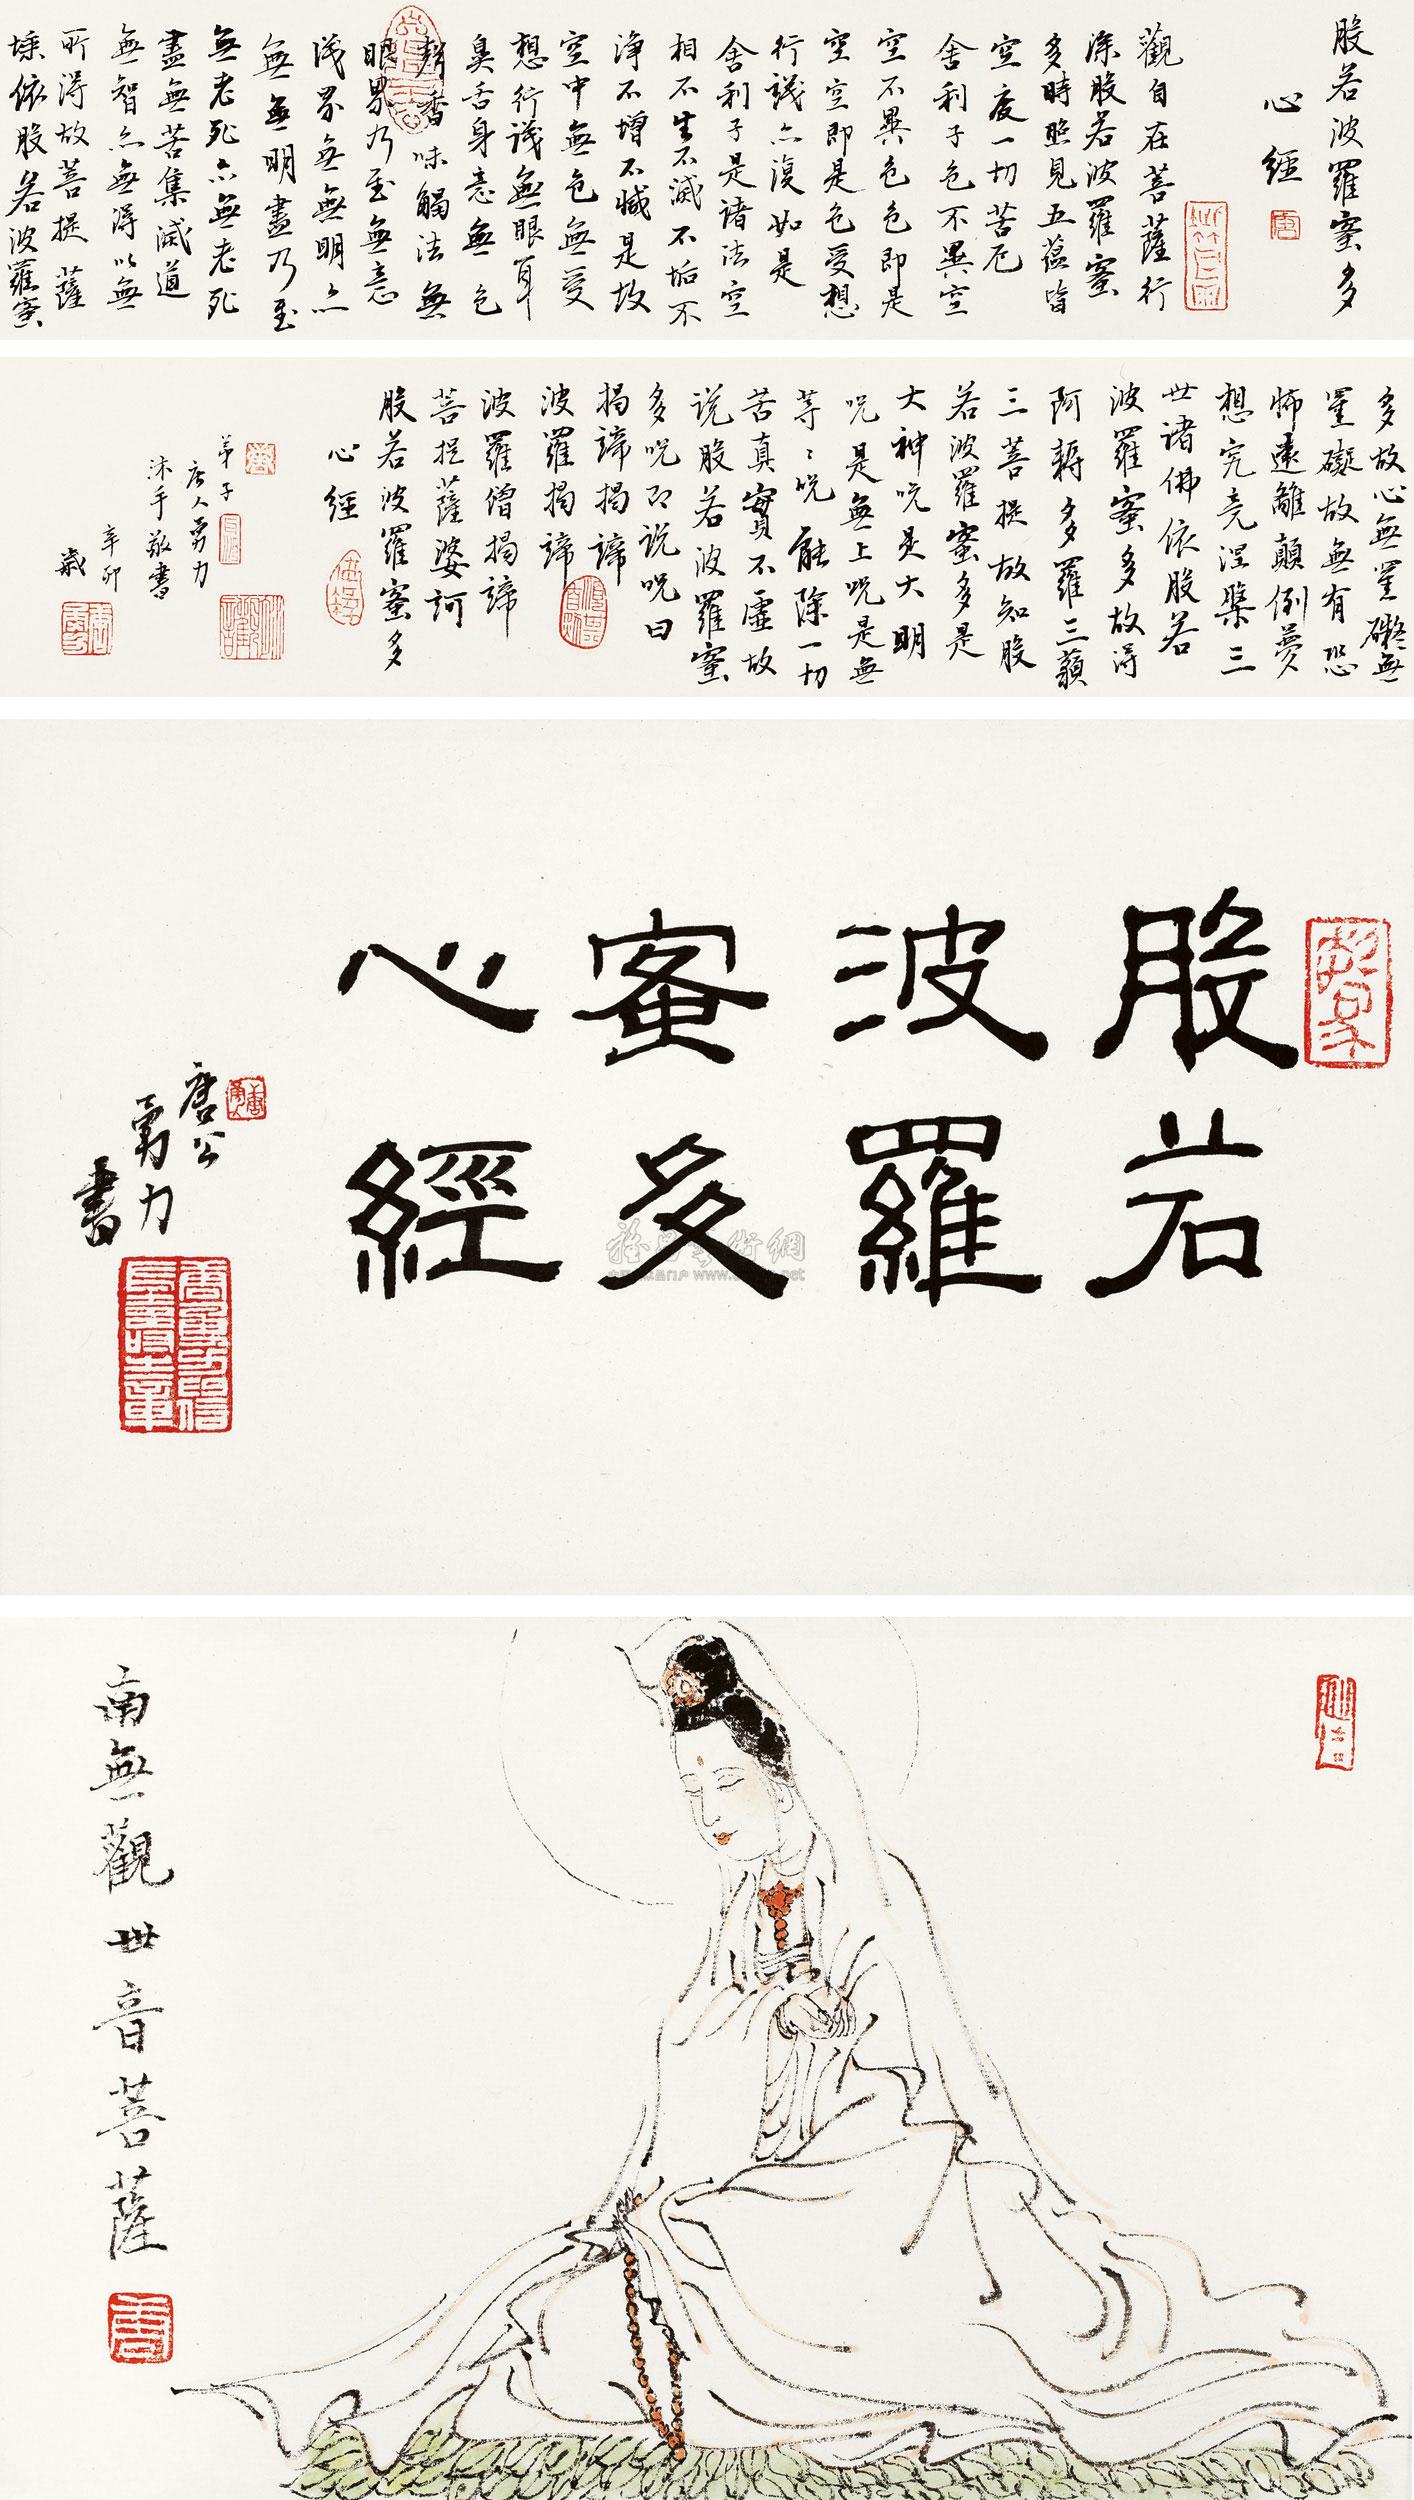 般若波羅蜜多
心經
觀自在菩薩行
深般若波羅蜜
多時照見五蘊皆
空度一切苦厄
舍利子色不異空
空不異色色即是
空空即是色受想
行識亦復如是
舍利子是諸法空
相不生不滅不垢不
淨不增不減是故
空中無色無受
想行識無眼耳
鼻舌身意無色
聲香味觸法無
眼界乃至無意
識界無無明亦
無無明盡乃至
無老死亦無老死
盡無苦集滅道
無智亦無得以無
所得故菩提薩
埵依般若波羅蜜
多故心無罣礙無
罣礙故無有恐
怖遠離顛倒夢
想究竟涅槃三
世諸佛依般若
波羅蜜多故得
阿耨多羅三藐
三菩提故知般
若波羅蜜多是
大神咒是大明
咒是無上咒是無
等〻咒能除一切
苦真實不虛故
說般若波羅蜜
多咒即說咒曰
揭諦揭諦
波羅揭諦
波羅僧揭諦
菩提薩婆訶
般若波羅蜜多
心經
弟子
唐人勇力
沐手敬書
辛卯
歲
般若
波羅
蜜多
心經
唐公
勇力
書
南無觀世音菩薩